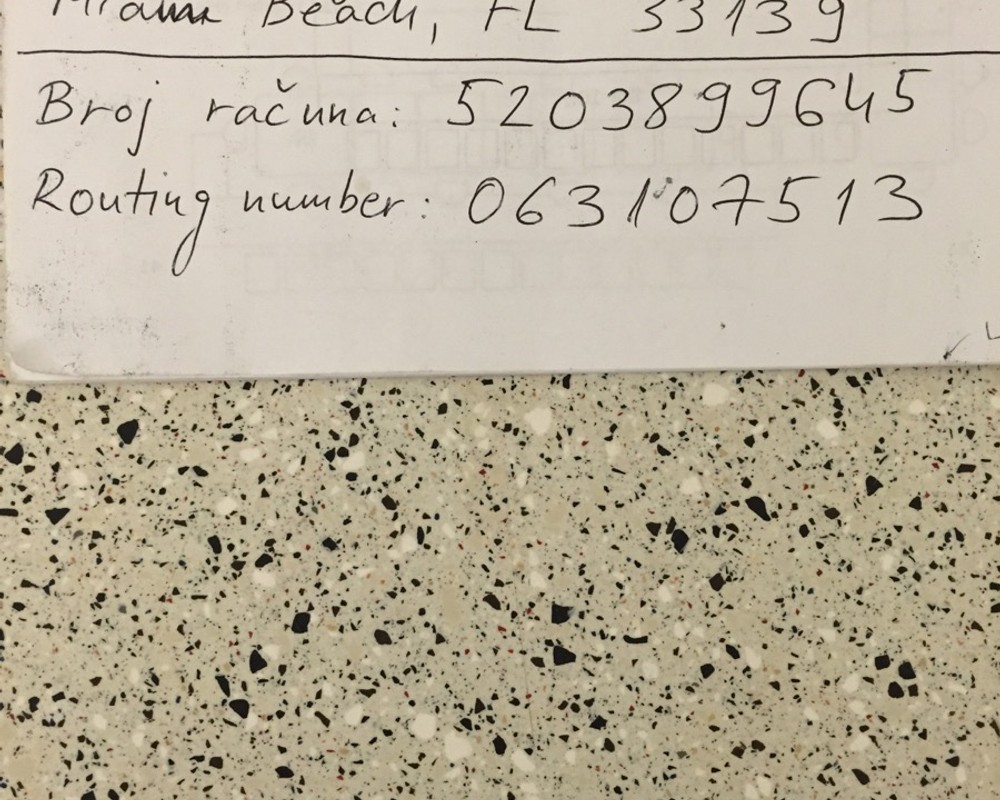 Miami Beach, FL 33139
Broj računa: 5203899645
Routing number: 063107513